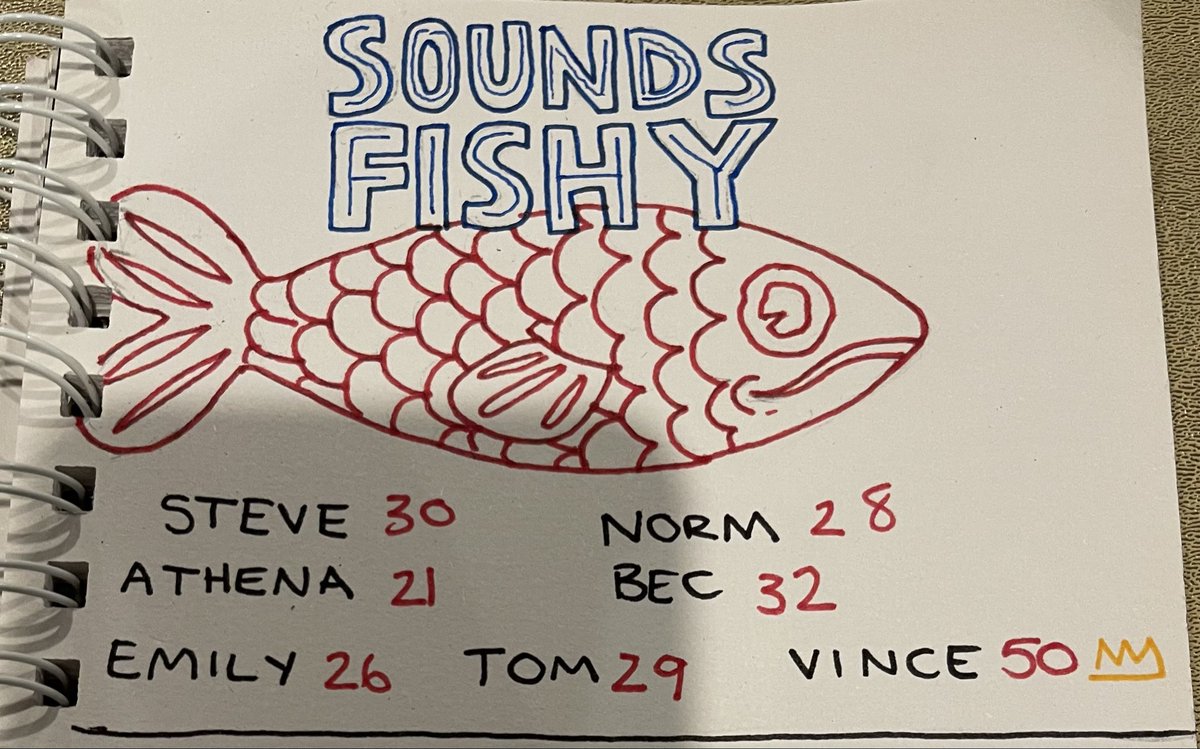 SOUNDS
FISHY
STEVE 30 NORM 28
ATHENA 21 BEC 32
EMILY 26 TOM 29 VINCE 50